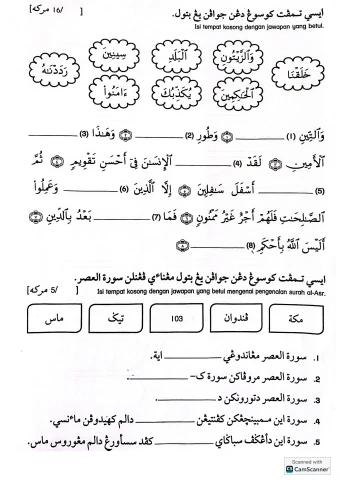 ايسي تمڤت كوسوڠ دڠن جواڤن يڠ بتول.
[ /16 مركه]
Isi tempat kosong dengan jawapan yang betul.
خَلَقْنَا وَالزَّيْتُونِ الْبَلَدِ سِينِينَ رَدَدْنَٰهُ
الْحَٰكِمِينَ يُكَذِّبُكَ ءَامَنُوا۟
وَالتِّينِ (1) ________ ① (2) وَطُورِ ________ ② وَهَٰذَا (3) ________
الْأَمِينِ ③ لَقَدْ (4) ________ الْإِنسَٰنَ فِىٓ أَحْسَنِ تَقْوِيمٍ ④ ثُمَّ
(5) ________ أَسْفَلَ سَٰفِلِينَ ⑤ إِلَّا الَّذِينَ (6) ________ وَعَمِلُوا۟
الصَّٰلِحَٰتِ فَلَهُمْ أَجْرٌ غَيْرُ مَمْنُونٍ ⑥ فَمَا (7) ________ بَعْدُ بِالدِّينِ ⑦
أَلَيْسَ اللَّهُ بِأَحْكَمِ (8) ________ ⑧
ايسي تمڤت كوسوڠ دڠن جواڤن يڠ بتول مڠناءي ڤڠنلن سورة العصر.
[ /5 مركه]
Isi tempat kosong dengan jawapan yang betul mengenai pengenalan surah al-Asr.
مكة ڤندوان 103 تيݢ ماس
1. سورة العصر مڠاندوڠي ________ اية.
2. سورة العصر مروڤاكن سورة ك– ________.
3. سورة العصر دتورونكن د ________.
4. سورة اين ممبينچڠكن كڤنتيڠن ________ دالم كهيدوڤن ماءنسي.
5. سورة اين داڠݢڤ سباݢاي ________ كڤد سسأورڠ دالم مڠوروس ماس.
Scanned with
CamScanner